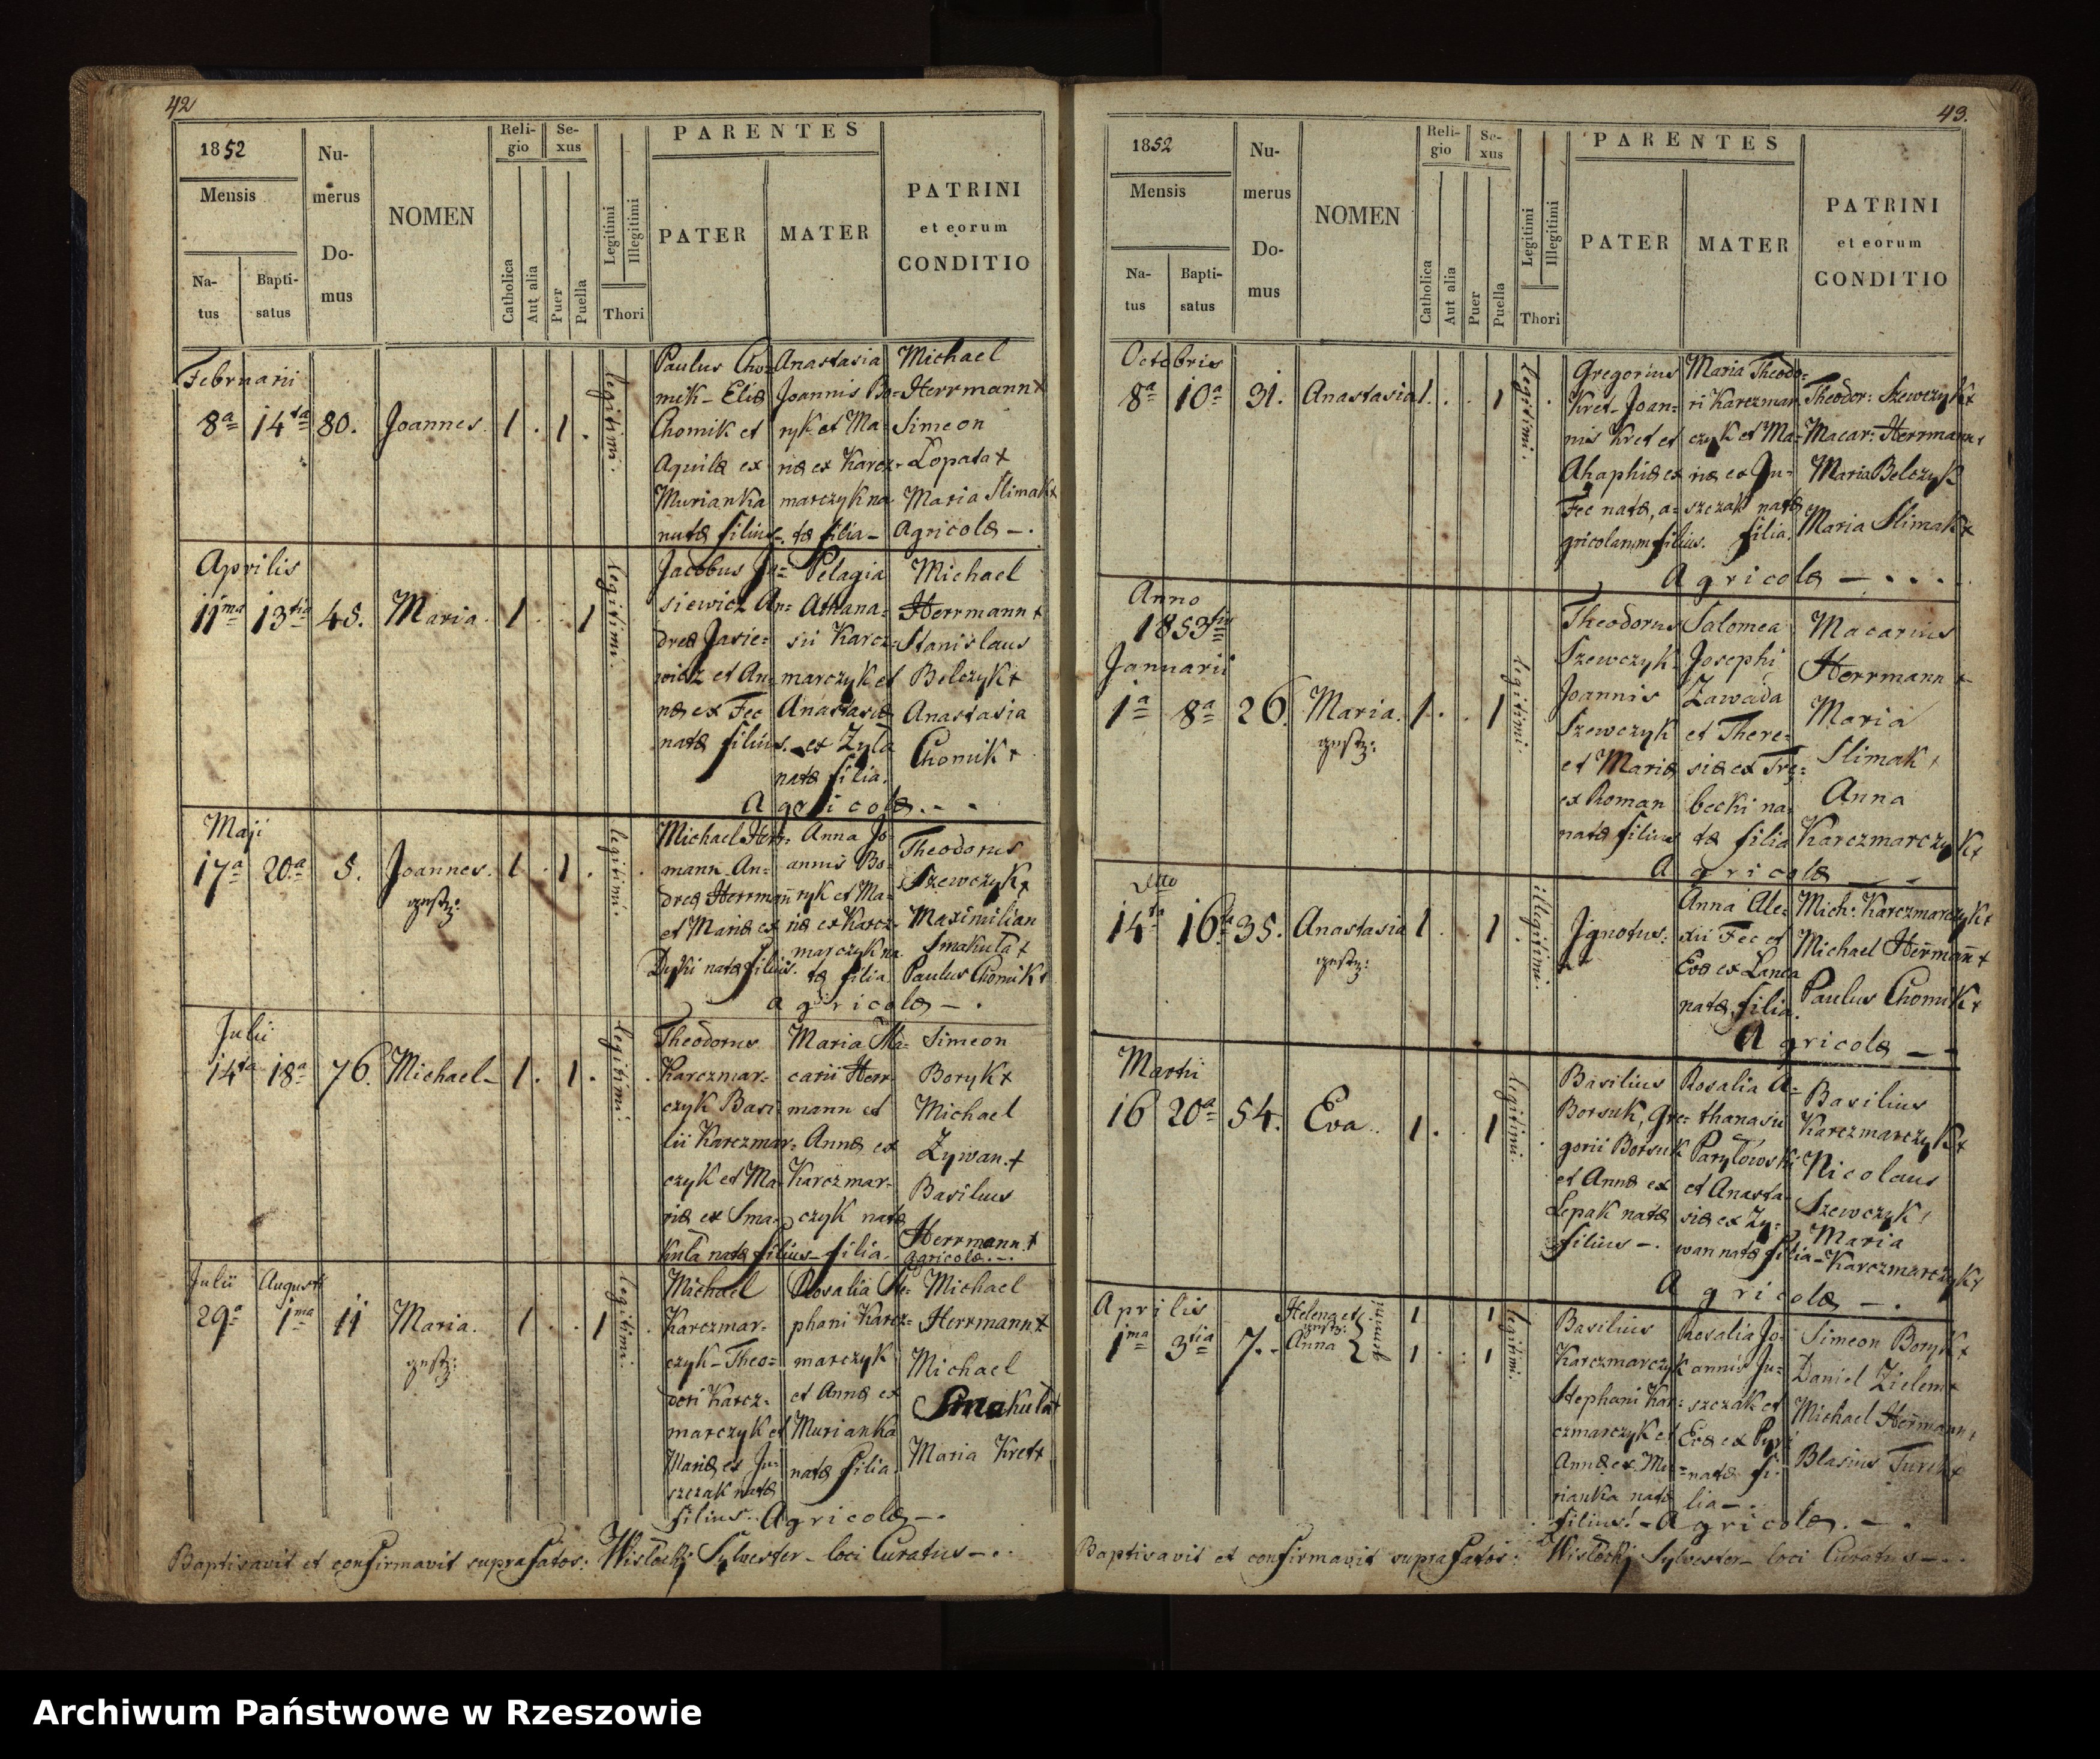 42
1852
Mensis
Na-
tus
Bapti-
satus
Nu-
merus
Do-
mus
NOMEN
Reli-
gio
Catholica
Aut alia
Se-
xus
Puer
Puella
Legitimi
Illegitimi
Thori
PARENTES
PATER
MATER
PATRINI
et eorum
CONDITIO
Februarii
8a 14ta 80. Joannes. 1 . 1 .
legitimi.
Paulus Cho=
mik – Eliæ
Chomik et
Aquilæ ex
Murianka
natæ filius –.
Anastasia
Joannis Bo=
ryk et Ma=
riæ ex Karcz=
marczyk na
tæ filia –
Michael
Herrmann +
Simeon
Łopata +
Maria Slimak +
Agricolæ – .
Aprilis
11ma 13tia 45. Maria. 1 . . 1
legitimi.
Jacobus Ja=
siewicz An=
dreæ Jasie=
wicz et An=
næ ex Fec
natæ filius.
Pelagia
Athana=
sii Karcz=
marczyk et
Anastasiæ
ex Zyla
natæ filia.
Michael
Herrmann +
Stanislaus
Belczyk +
Anastasia
Chomik +
Agricolæ. – –
Maji
17a 20a 5. Joannes. 1 . 1 .
legitimi.
Michael Herr=
mann An=
dreæ Herrmann
et Mariæ ex
Dyki natæ filius.
Anna Jo=
annis Bo=
ryk et Ma=
riæ ex Karcz=
marczyk na
tæ filia.
Theodorus
Szewczyk +
Maximilian
Smakuła +
Paulus Chomik +
agricolæ – .
Julii
14ta 18a 76. Michael – 1 . 1 .
legitimi
Theodorus
Karczmar=
czyk Basi
lii Karczmar=
czyk et Ma=
riæ ex Sma=
kuła natæ filius –
Maria Ma=
carii Herr=
mann et
Annæ ex
Karczmar=
czyk natæ
filia.
Simeon
Boryk +
Michael
Zywan. +
Basilius
Herrmann +
Agricolæ. – .
Julii Augusti
29a 1ma 11 Maria. 1 . . 1
legitimi.
Michael
Karczmar=
czyk – Theo=
dori Karcz=
marczyk et
Mariæ ex Ju=
szczak natæ
filius.
Rosalia Ste=
phani Karcz=
marczyk
et Annæ ex
Murianka
natæ filia
Michael
Herrmann +
Michael
Smakuła +
Maria Kret +
Agricolæ – .
Baptisavit et confirmavit supra fatos: Wisłocki Sylvester – loci Curatus – . .
43.
1852
Mensis
Na-
tus
Bapti-
satus
Nu-
merus
Do-
mus
NOMEN
Reli-
gio
Catholica
Aut alia
Se-
xus
Puer
Puella
Legitimi
Illegitimi
Thori
PARENTES
PATER
MATER
PATRINI
et eorum
CONDITIO
Octobris
8a 10a 31. Anastasia 1 . . 1
legitimi.
Gregorius
Kret – Joan=
nis Kret et
Ahaphiæ ex
Fec natæ, a=
gricolarum filius.
Maria Theodo=
ri Karczmar
czyk et Ma=
riæ ex Ju=
szczak natæ
filia.
Theodor: Szewczyk +
Macar: Herrmann +
Maria Belczyk
Maria Slimak +
Agricolæ – . . . .
Anno
1853tio
Januarii
1a 8a 26. Maria. 1 . . 1
legitimi.
Theodorus
Szewczyk
Joannis
Szewczyk
et Mariæ
ex Roman
natæ filius
Salomea
Josephi
Zawada
et There=
siæ ex Trę=
becki na=
tæ filia
Macarius
Herrmann +
Maria
Slimak +
Anna
Karczmarczyk +
Agricolæ
detto
14ta 16ta 35. Anastasia 1 . . 1
illegitimi.
Ignotus.
Anna Ale=
xii Fec et
Evæ ex Lanca
natæ filia.
Mich: Karczmarczyk +
Michael Hermann +
Paulus Chomik +
Agricolæ – –
Martii
16 20a 54. Eva. 1 . . 1
legitimi.
Basilius
Borsuk, Gre=
gorii Borsuk
et Annæ ex
Lepak natæ
filius – .
Rosalia A=
thanasii
Paryłowski
et Anasta=
siæ ex Zy=
wan natæ filia –
Basilius
Karczmarczyk +
Nicolaus
Szewczyk +
Maria
Karczmarczyk +
Agricolæ – .
Aprilis
1ma 3tia 7. – Helena et
Anna
gemini
1 . . 1
1 . . 1
legitimi.
Basilius
Karczmarczyk
Stephani Kar=
czmarczyk et
Annæ ex Mu=
rianka natæ
filius! –
Rosalia Jo=
annis Ju=
szczak et
Evæ ex Pyrż
natæ fi=
lia – .
Simeon Boryk +
Daniel Zielem +
Michael Hermann +
Blasius Turek +
Agricolæ. – .
Baptisavit et confirmavit supra fatos: Wisłocki Sylvester – loci Curatus – . .
Archiwum Państwowe w Rzeszowie